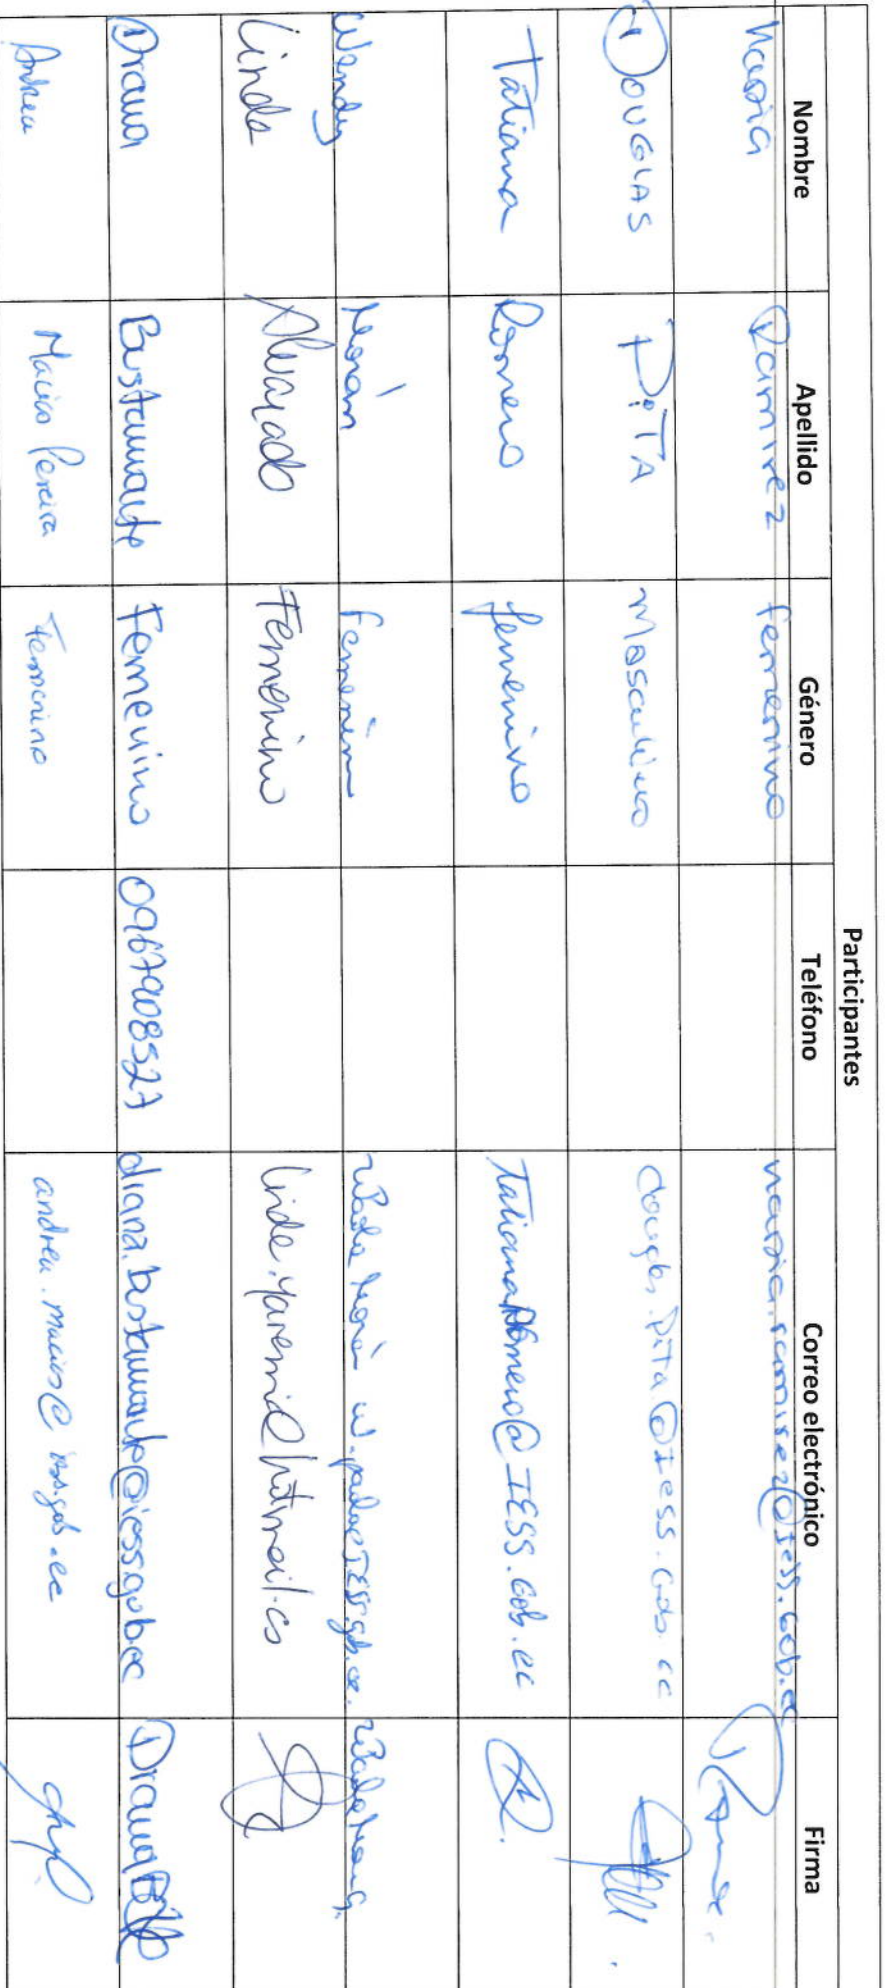 Participantes
Nombre Apellido Género Teléfono Correo electrónico Firma
Ramirez femenino
DOUGLAS PITA Masculino douglas.pita@iess.gob.ec
Tatiana Romero femenino Tatiana.Romero@IESS.Gob.ec
Wendy Morán Femenino
Linda Alvarado Femenino
Diana Bustamante Femenino 0967908527 diana.bustamante@iess.gob.ec
Andrea Macias Pereira Femenino andrea.macias@iess.gob.ec